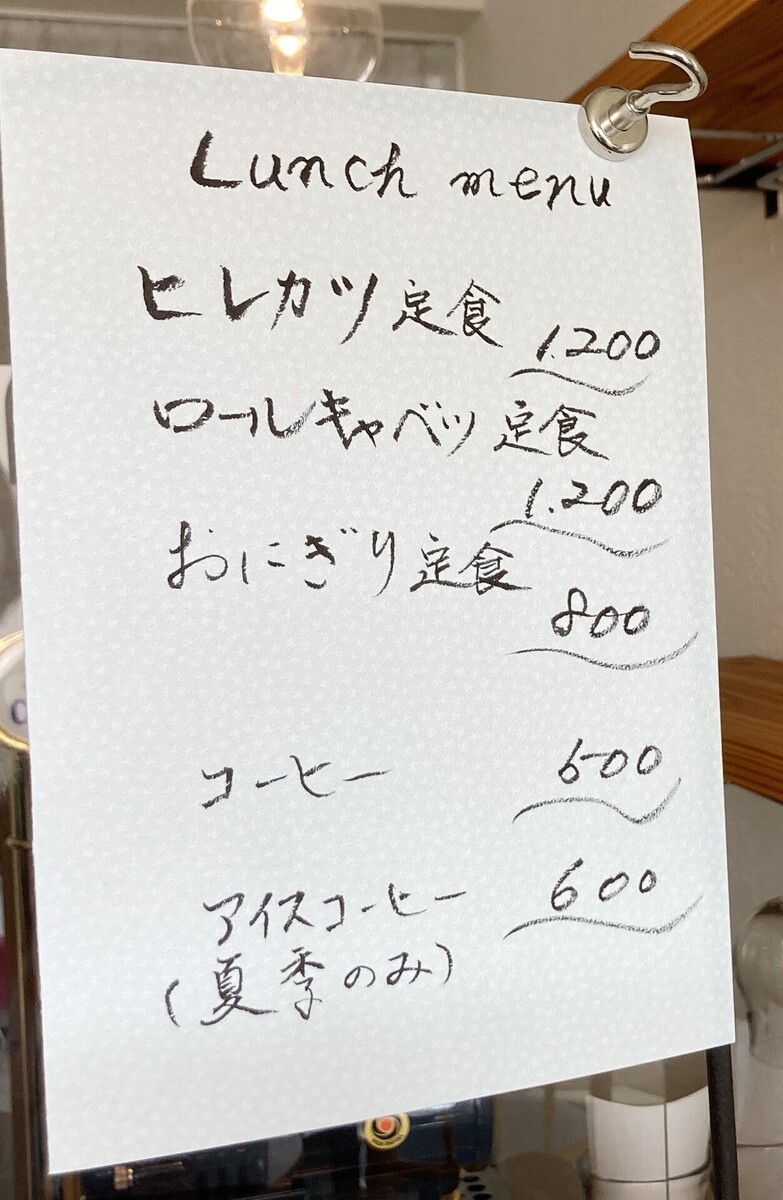 Lunch menu
ヒレカツ定食 1.200
ロールキャベツ定食
1.200
おにぎり定食
800
コーヒー 600
アイスコーヒー 600
(夏季のみ)